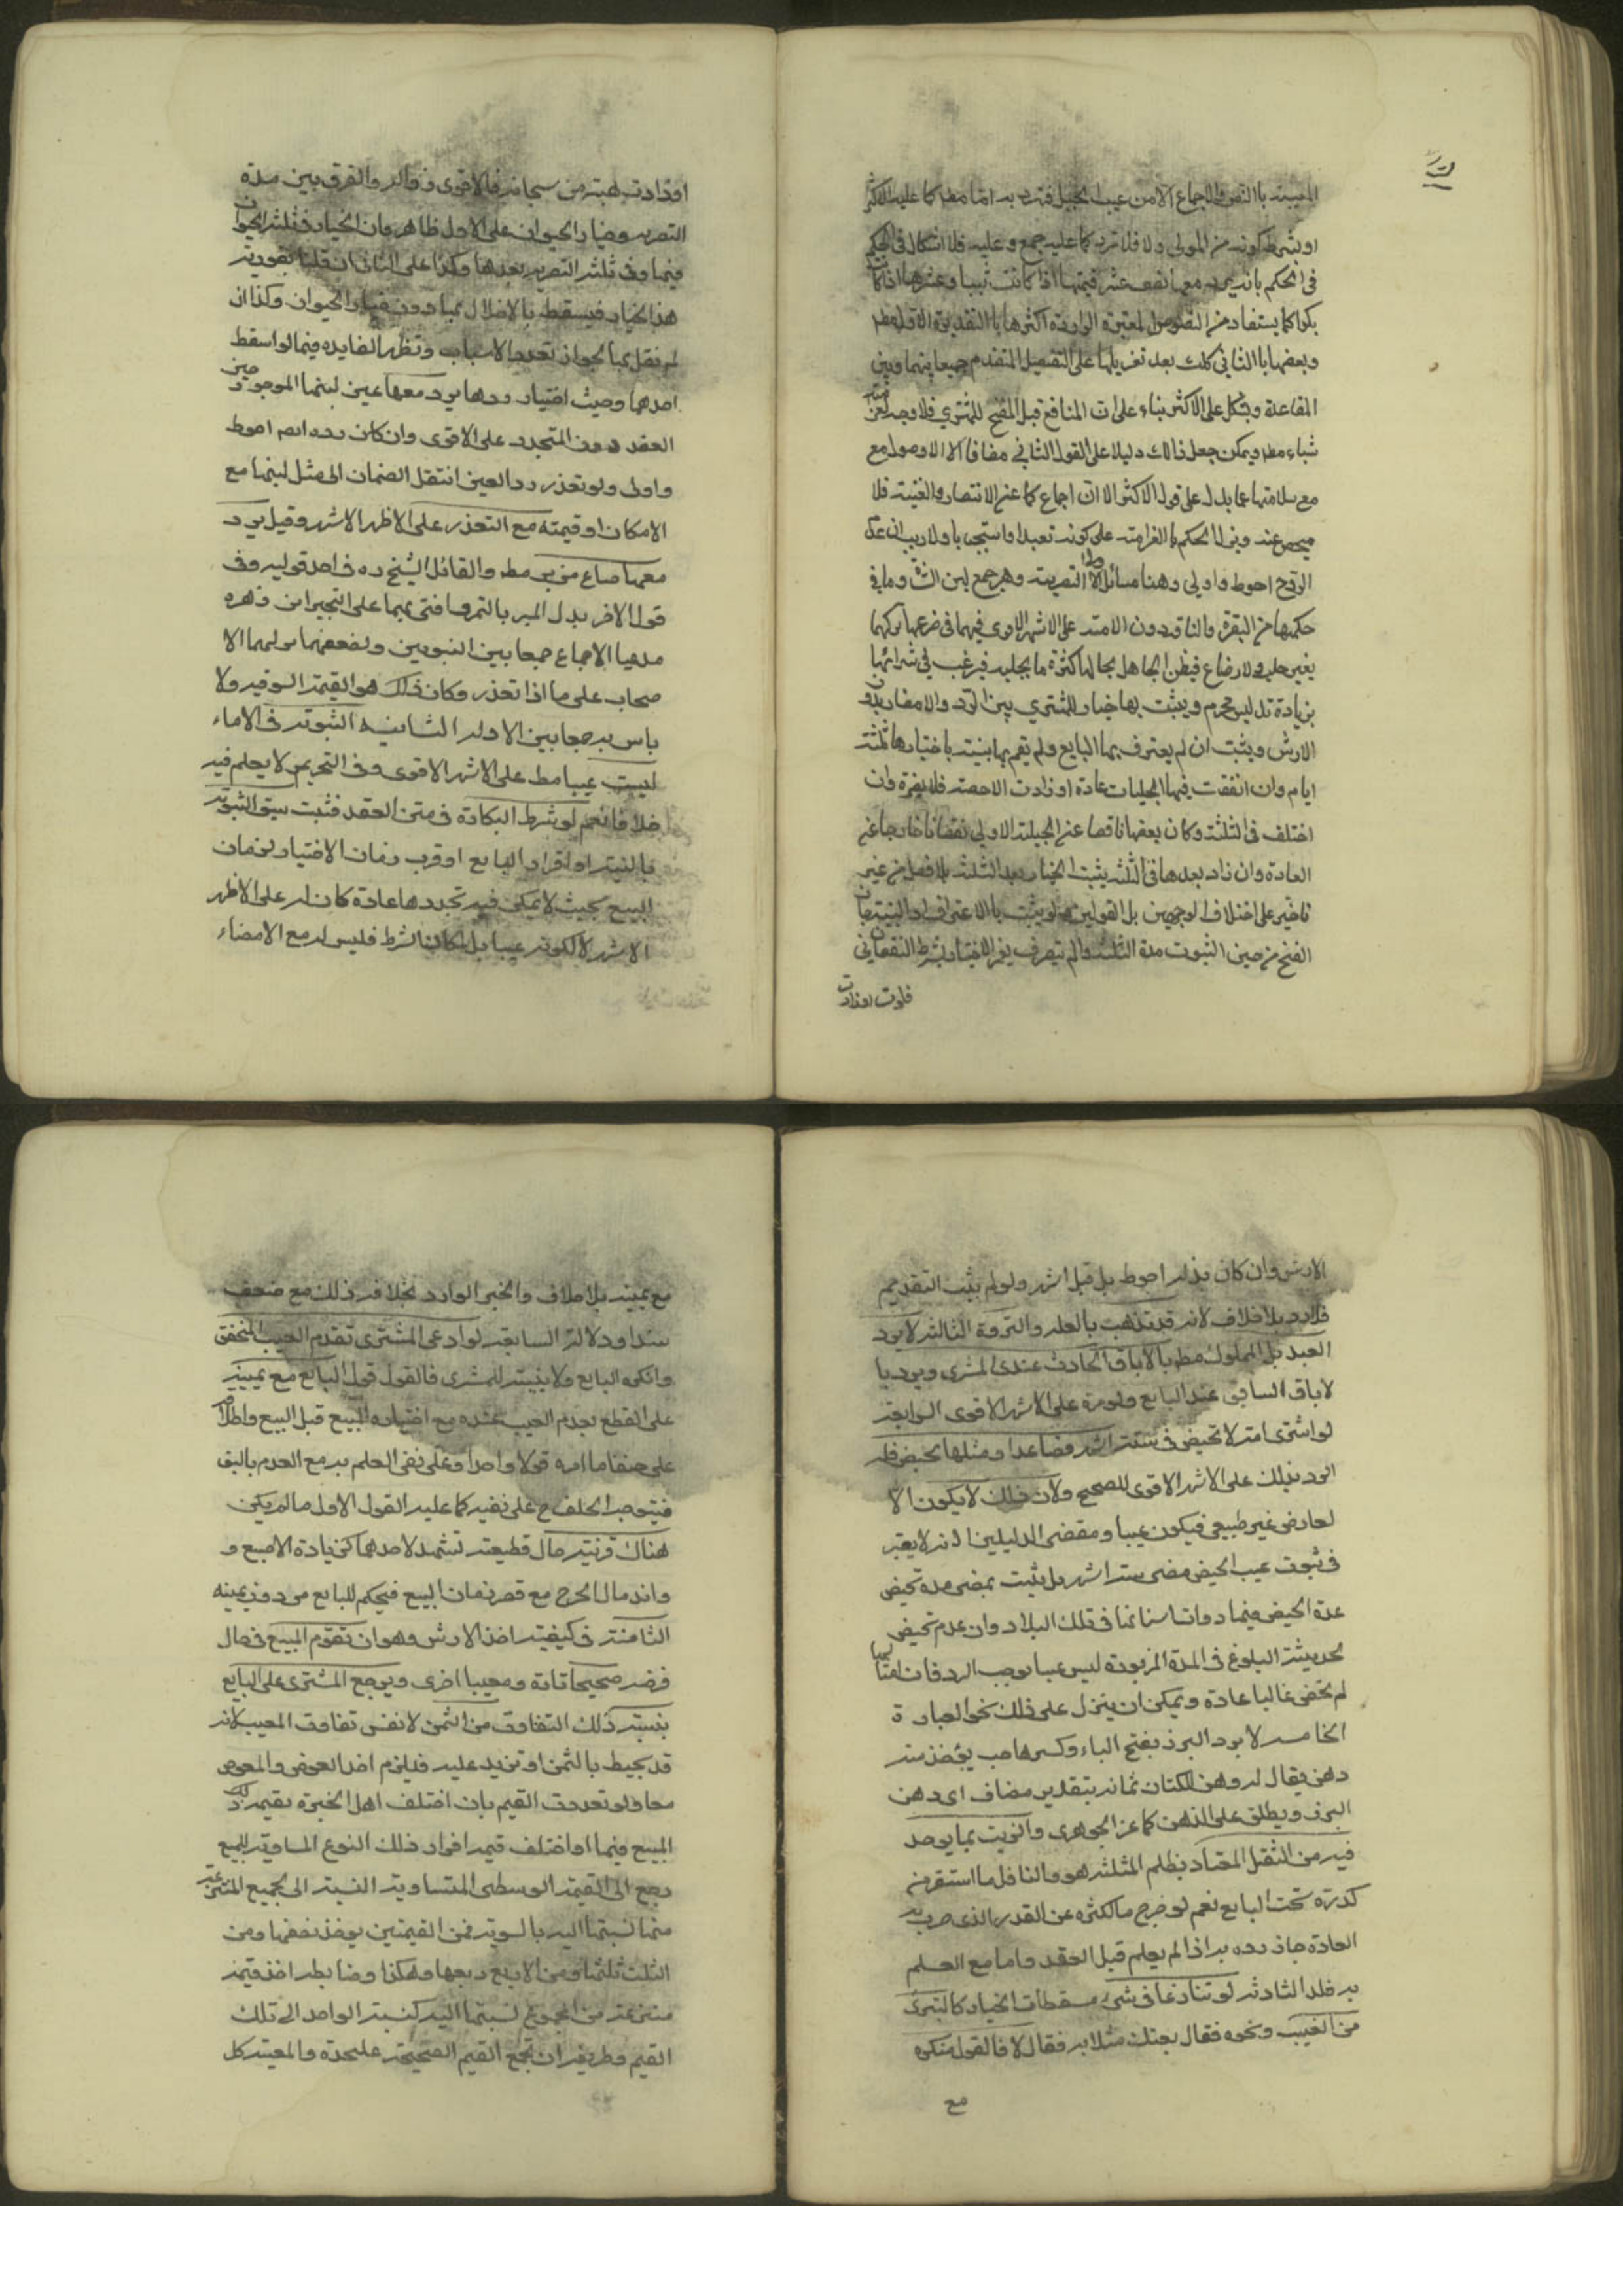 المبيته بالنص والاجماع الا من عيب الحبل فترد به اتفا مط كما عليه الاكثر
او بشرط كونه من المولى ولا فلا ترد كما عليه جمع وعليه فلا اشكال في الحكم
في الحكم بانه يرد معها نصف عشر قيمتها اذا كانت ثيبا وعشرها اذا كانت
بكرا كما يستفاد من النصوص المعتبرة الوارده اكثرها با التقدير الاول مط
وبعضها با الثاني كذلك بعد تنزيلها على التفصيل المتقدم جمعا بينها وبين
القاعدة ويشكل على الاكثر بناء على ان المنافع قبل الفسخ للمشتري فلا وجه
شياء مط ويمكن جعل ذالك دليلا على القول الثاني مضافا الى الاوصول مع
مع سلامتها عما يدل على قول الاكثر الا ان اجماع كما عن الانتصار والغنية فلا
محيص عنه وبنى الحكم با الغرامة على كونه تعبدا واستجبابا ولا ريب ان
احوط واولى وهنا مسائل الاولى التصرية وهي جمع لبن الشاة وما في
حكمها من البقرة والناقة دون الامة على الاشهر الاقوى فيهما في ضرعها بتركها
بغير حلب ولا رضاع فيظن الجاهل بحالها كثرة ما يحلبه فيرغب في شرائها
بزيادة تدليس محرم ويثبت بها خيار للمشتري بين الرد والامضاء بدون
الارش ويثبت ان لم يعترف بها البايع ولم يقم بها بينة باختبارها ثلثة
ايام فان اتفقت فيها الحلبات عادة او زادت الاخصة فلا يضره وان
اختلف في الثلثة وكان بعضها ناقصا عن الحلبة الاولى نقصانا خارجا عن
العادة وان زاد بعدها في الثلثة يثبت الخيار بعد الثلثة بلا فصل من غير
تاخير على اختلاف الوجهين بل القولين ولو يثبت با الاعتراف او البينة فان
الفسخ من حين الثبوت مدة الثلثة والم يتصرف بغير الاختبار بشرط النقصان
فلوت اوزادت
او زادت هبته من سبحانه فالاقوى زواله والفرق بين مدة
التصريه وخيار الحيوان على الاول ظاهر فان الخيار في ثلثه الحيوان
فيها وفي ثلثه التصريه بعدها وكذا على الثاني ان قلنا بفوريه
هذا الخيار فيسقط بالاخلال بها دون خيار الحيوان وكذا ان
لم نقل بها لجواز تعدد الاسباب وتظهر الفايده فيما لو اسقط
احدهما وحيث اختيار ردها يرد معها عين لبنها الموجود حين
العقد دون المتجدد على الاقوى وان كان رده ايضا احوط
واولى ولو تعذر رد العين انتقل الضمان الى مثل لبنها مع
الامكان او قيمته مع التعذر على الاظهر الاشهر وقيل يرد
معها صاع من بر مط والقائل الشيخ ره في احد قوليه وفي
قول الاخر بدل البر بالتمر وافتى بهما على التخيير ابن زهره
مدعيا الاجماع جمعا بين النبويين ولضعفهما حملهما الا
صحاب على ما اذا تعذر وكان ذلك هو القيمة السوقيه ولا
باس به جمعا بين الادله الثانيه الثيوبة في الاماء
ليست عيبا مط على الاشهر الاقوى وفي التحرير لا يعلم فيه
خلافا نعم لو شرط البكارة في متن العقد فثبت سبق الثيوبة
بالبينة او اقرار البايع او قرب زمان الاختيار لزمان
البيع بحيث لا يمكن فيه تجددها عادة كان له على الاظهر
الاشهر لا لكونه عيبا بل لمكان الشرط فليس له مع الامضاء
الارش وان كان بذله احوط بل قيل اشهر ولو لم يثبت التقديم
فلا رد بلا خلاف لانه قد تذهب بالعله والنزوة الثالثه لا يرد
العبد بل المملوك مط با لاباق الحادث عند المشري ويرد با
لاباق السابق عند البايع ولو مرة على الاشهر الاقوى الرابعة
لو اشترى امة لا تحيض في ستة اشهر فصاعدا ومثلها تحيض فله
الرد بذلك على الاشهر الاقوى للصحيح ولان ذلك لا يكون الا
لعارض غير طبيعي فيكون عيبا ومقتضى الدليلين انه لا يعتبر
في ثبوت عيب الحيض مضى ستة اشهر بل يثبت بمضى مدة تحيض
عدة الحيض فيها ذوات اسنانها في تلك البلاد وان عدم تحيض
لحديثة البلوغ في المدة المزبوره ليس عيبا يوجب الرد فان امثالها
لم تحض غالبا عادة ويمكن ان ينزل على ذلك نحو العبارة
الخامسه لا يرد البزر بفتح الباء وكسرها حب يؤخذ منه
دهن يقال له دهن الكتان ثمانه بتقدير مضاف اى دهن
البزر ويطلق على الدهن كما عن الجوهري والزيت بما يوجد
فيه من الثفل المعتاد بظلم المثلثه هو والنافل ما استقر من
كدرته تحت البايع نعم لو خرج ماكثره عن القدر الذى جرت به
العادة جاز رده به اذا لم يعلم قبل العقد واما مع العلم
به فلا السادسه لو تنازعا في شىء مسقطات الخيار كالتبرى
من العيب ونحوه فقال بعتك مثلا به فقال لا فالقول منكره
مع
مع يمينه بلا خلاف والخبر الوارد بخلافه ذلك مع ضعف
سندا ودلالة السابعه لو ادعى المشترى تقدم العيب المتحقق
وانكره البايع ولا بينة للمشرى فالقول قول البايع مع يمينه
على القطع بعدم العيب عنده مع اختباره المبيع قبل البيع واطلاعه
على خفايا امره قولا واحدا وعلى نفى العلم به مع العدم بالبق
فيتوجه الحلف ح على نفيه كما عليه القول الاول ما لم يكن
هناك قرنية حال قطيعة تشهد لاحدهما كزيادة الاصبع و
واندمال الجرح مع قصر زمان البيع فيحكم للبايع من دون يمينه
الثامنة في كيفيته اخذ الارش وهو ان تقوم المبيع في حال
فرضه صحيحا تارة ومعيبا اخرى ويرجع المشترى على البايع
بنسبة ذلك التفاوت من الثمن لا نفس تفاوت المعيب لانه
قد يحيط بالثمن او تزيد عليه فيلزم اخذ العوض والمعوض
معا ولو تعددت القيم بان اختلف اهل الخبره بقيمة ذلك
المبيع فيما او اختلف قيمة افراد ذلك النوع المساوية للمبيع
رجع الى القيمة الوسطى المتساوية النسبة الى الجميع المنتزعة
منها نسبتها اليه بالسويه فمن القيمتين يوخذ نصفها ومن
الثلث ثلثها ومن الاربع ربعها وهكذا وضابطه اخذ قيمة
منتزعة من المجموع نسبتها اليه كنسبة الواحد الى تلك
القيم وطريقه ان تجمع القيم الصحيحة عليحدة والمعيبة كل